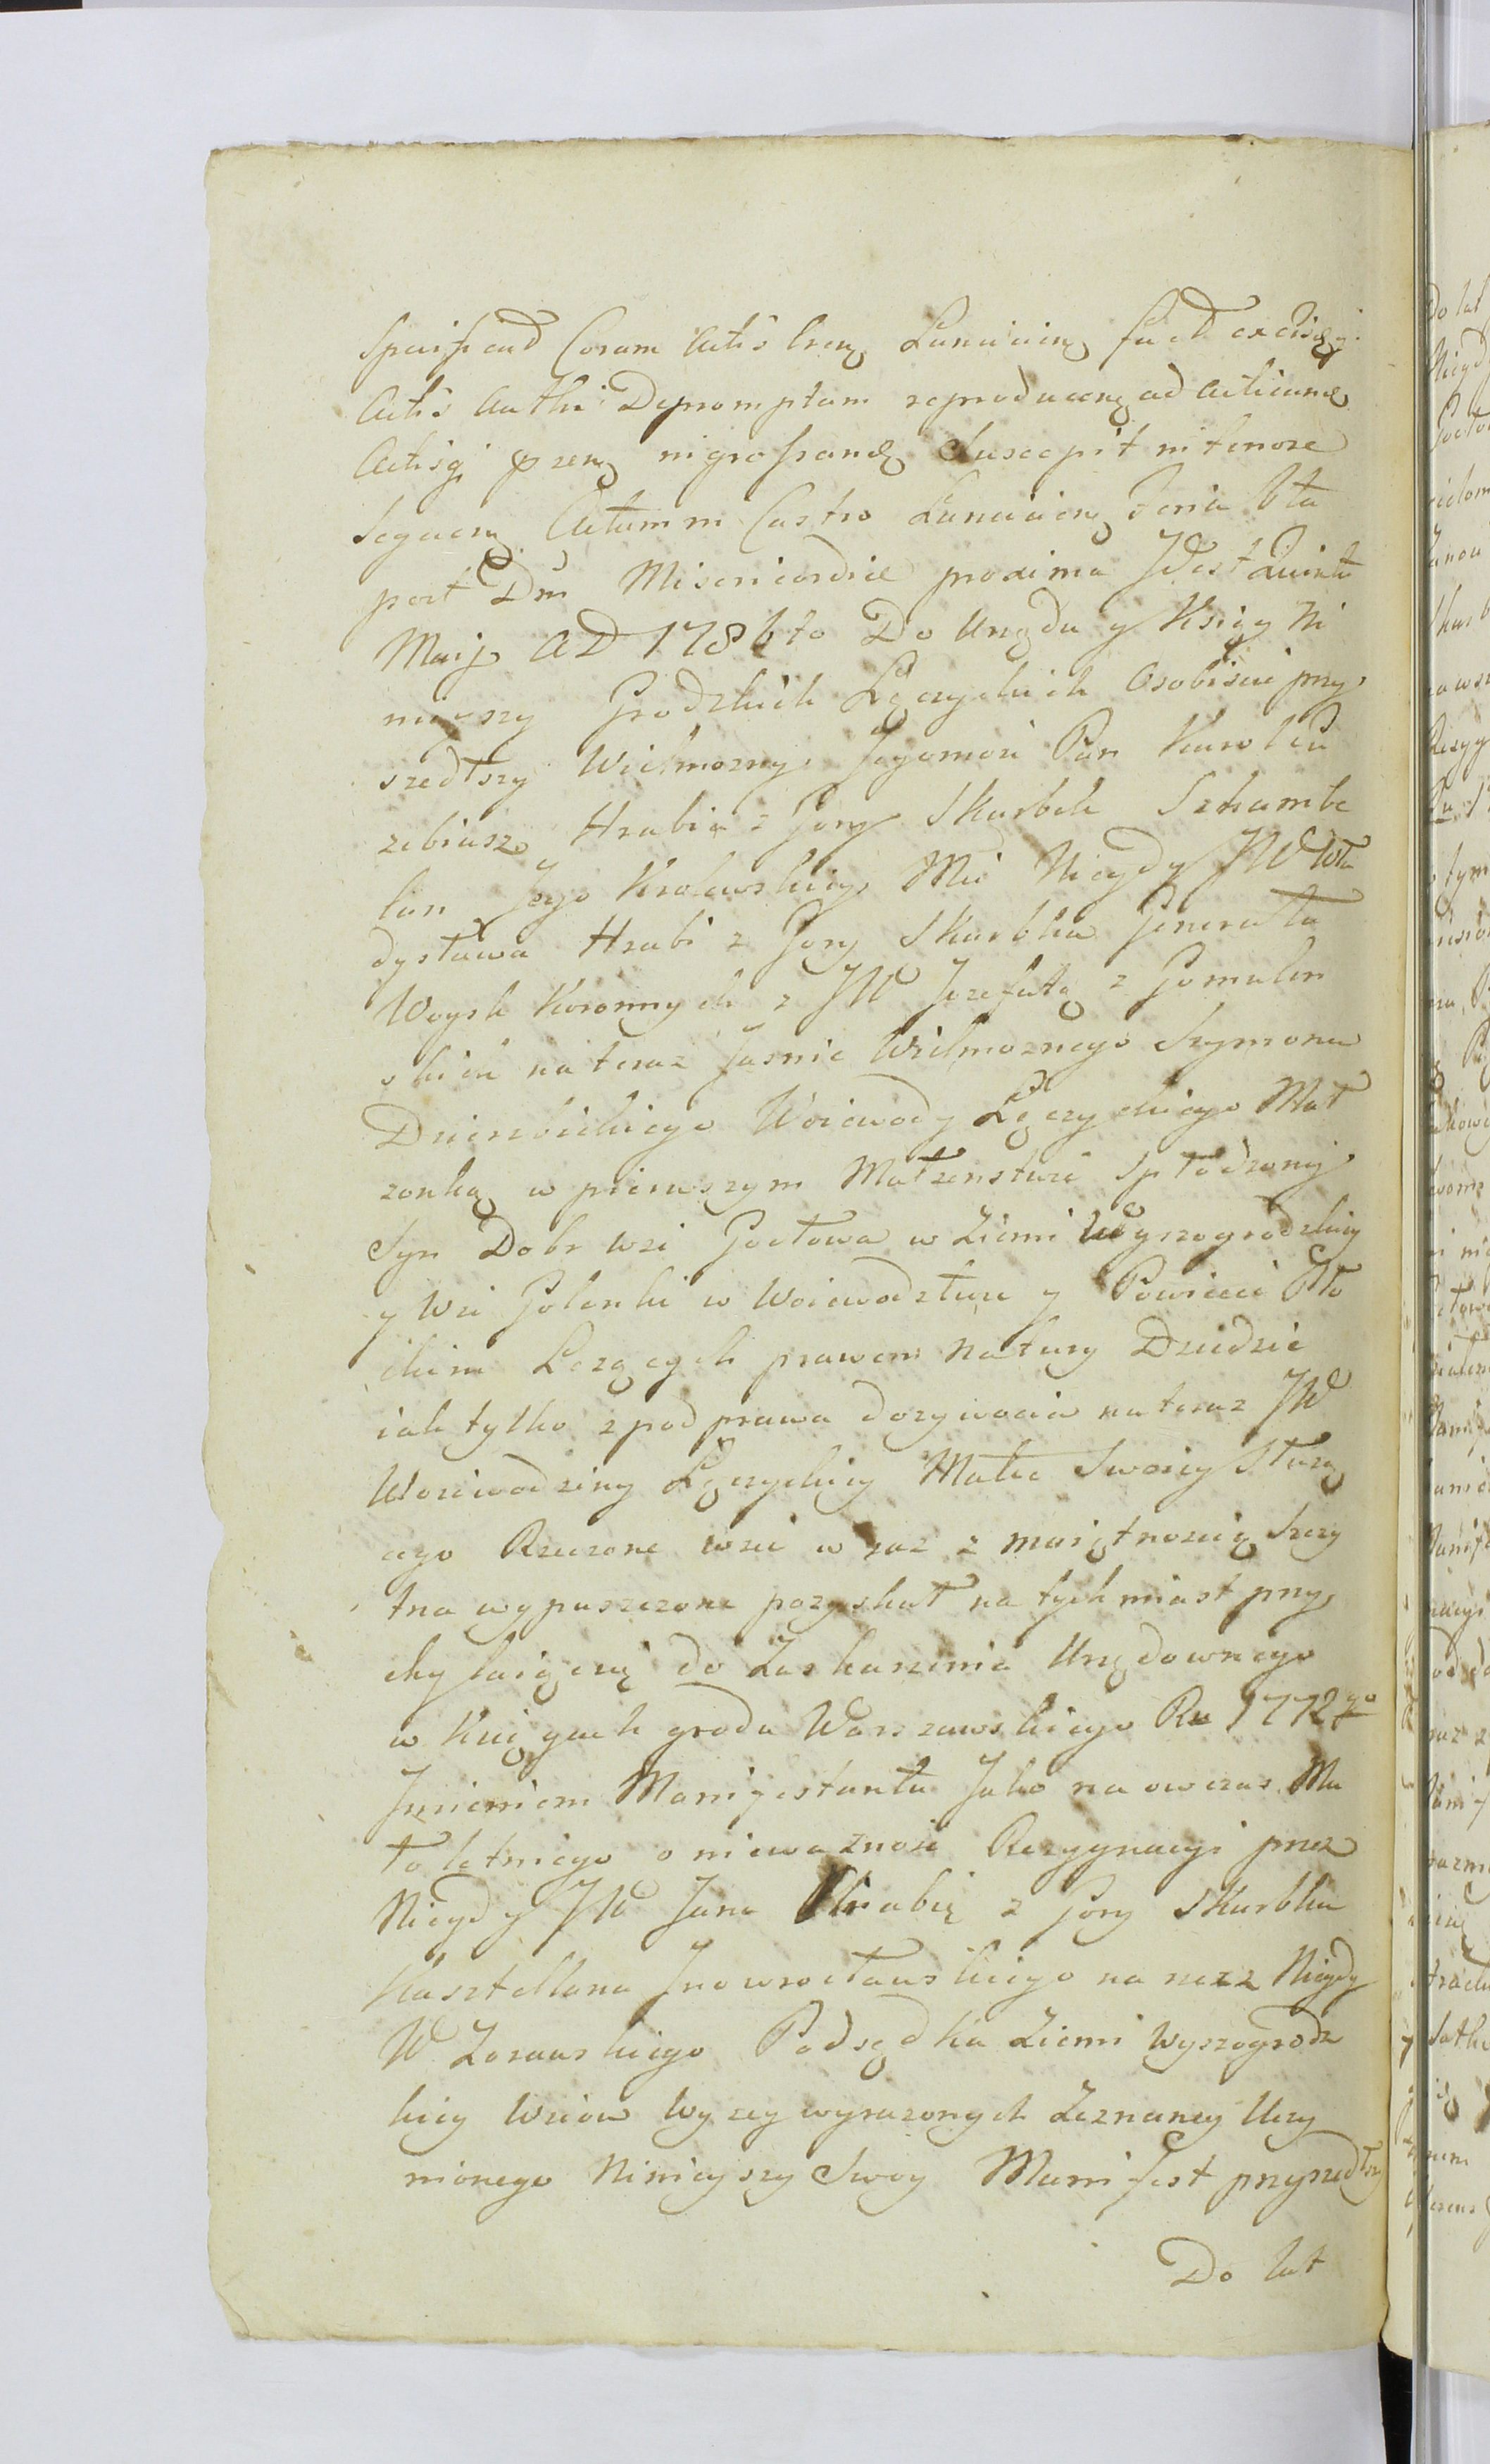 Specificad Coram Actis Cren Lancicien fact ex eisq
Actis Authe Depromptam reproducen ad Acticand
Actisq pren ingrossand Suscepit in tenore
Sequen Actum in Castro Lancicien Feria 6ta
post Dm Misericordiae proxima Idest Quinta
Maij AD 1786to Do Urzędu y Ksiąg Ni
nieyszy Grodzkich Łęczyckich Osobiście przy
szedłszy Wielmozny Jegomość Pan Karol Eu
zebiusz Hrabia z Gory Skarbek Szambe
lan Jego Krolewskiey Mci Niegdy JW Wła
dysława Hrabi z Gory Skarbka Generała
Woysk Koronnych z JW Jozefatą z Gomolin
skich na teraz Jasnie Wielmoznego Szymona
Dzierzbickiego Woiewody Łęczyckiego Mał
zonką w pierwszym Małzenstwie Spłodzony
Syn Dobr Wsi Goctowa w Ziemi Wyszogrodzkiey
y Wsi Golanki w Woiewodztwie y Powiecie Pło
ckim Lezących prawem Natury Dziedzic
iak tylko z pod prawa dozywocia na teraz JW
Woiewodziny Łęczyckiey Matce Swoiey Słuzą
cego Rzeczone wsie w raz z maiętnoscią Szczy
tna wypuszczone pozyskał na tych miast przy
chylaiąc się do Zaskarzenia Urzędownego
w Xięgach grodu Warszawskiego Ru 1772go
Imieniem Manifestanta Jako na owczas Ma
łoletniego o niewaznosc Rezygnacyi przez
Niegdy JW Jana Hrabię z Gory Skarbka
Kasztellana Inowrocławskiego na rzecz Niegdy
W Zorawskiego Podsędka Ziemi Wyszogrodz
kiey Wsiow Wyzey wyrazonych Zeznaney Uczy
nionego Ninieyszy Swoy Manifest przyszedłszy
Do lat